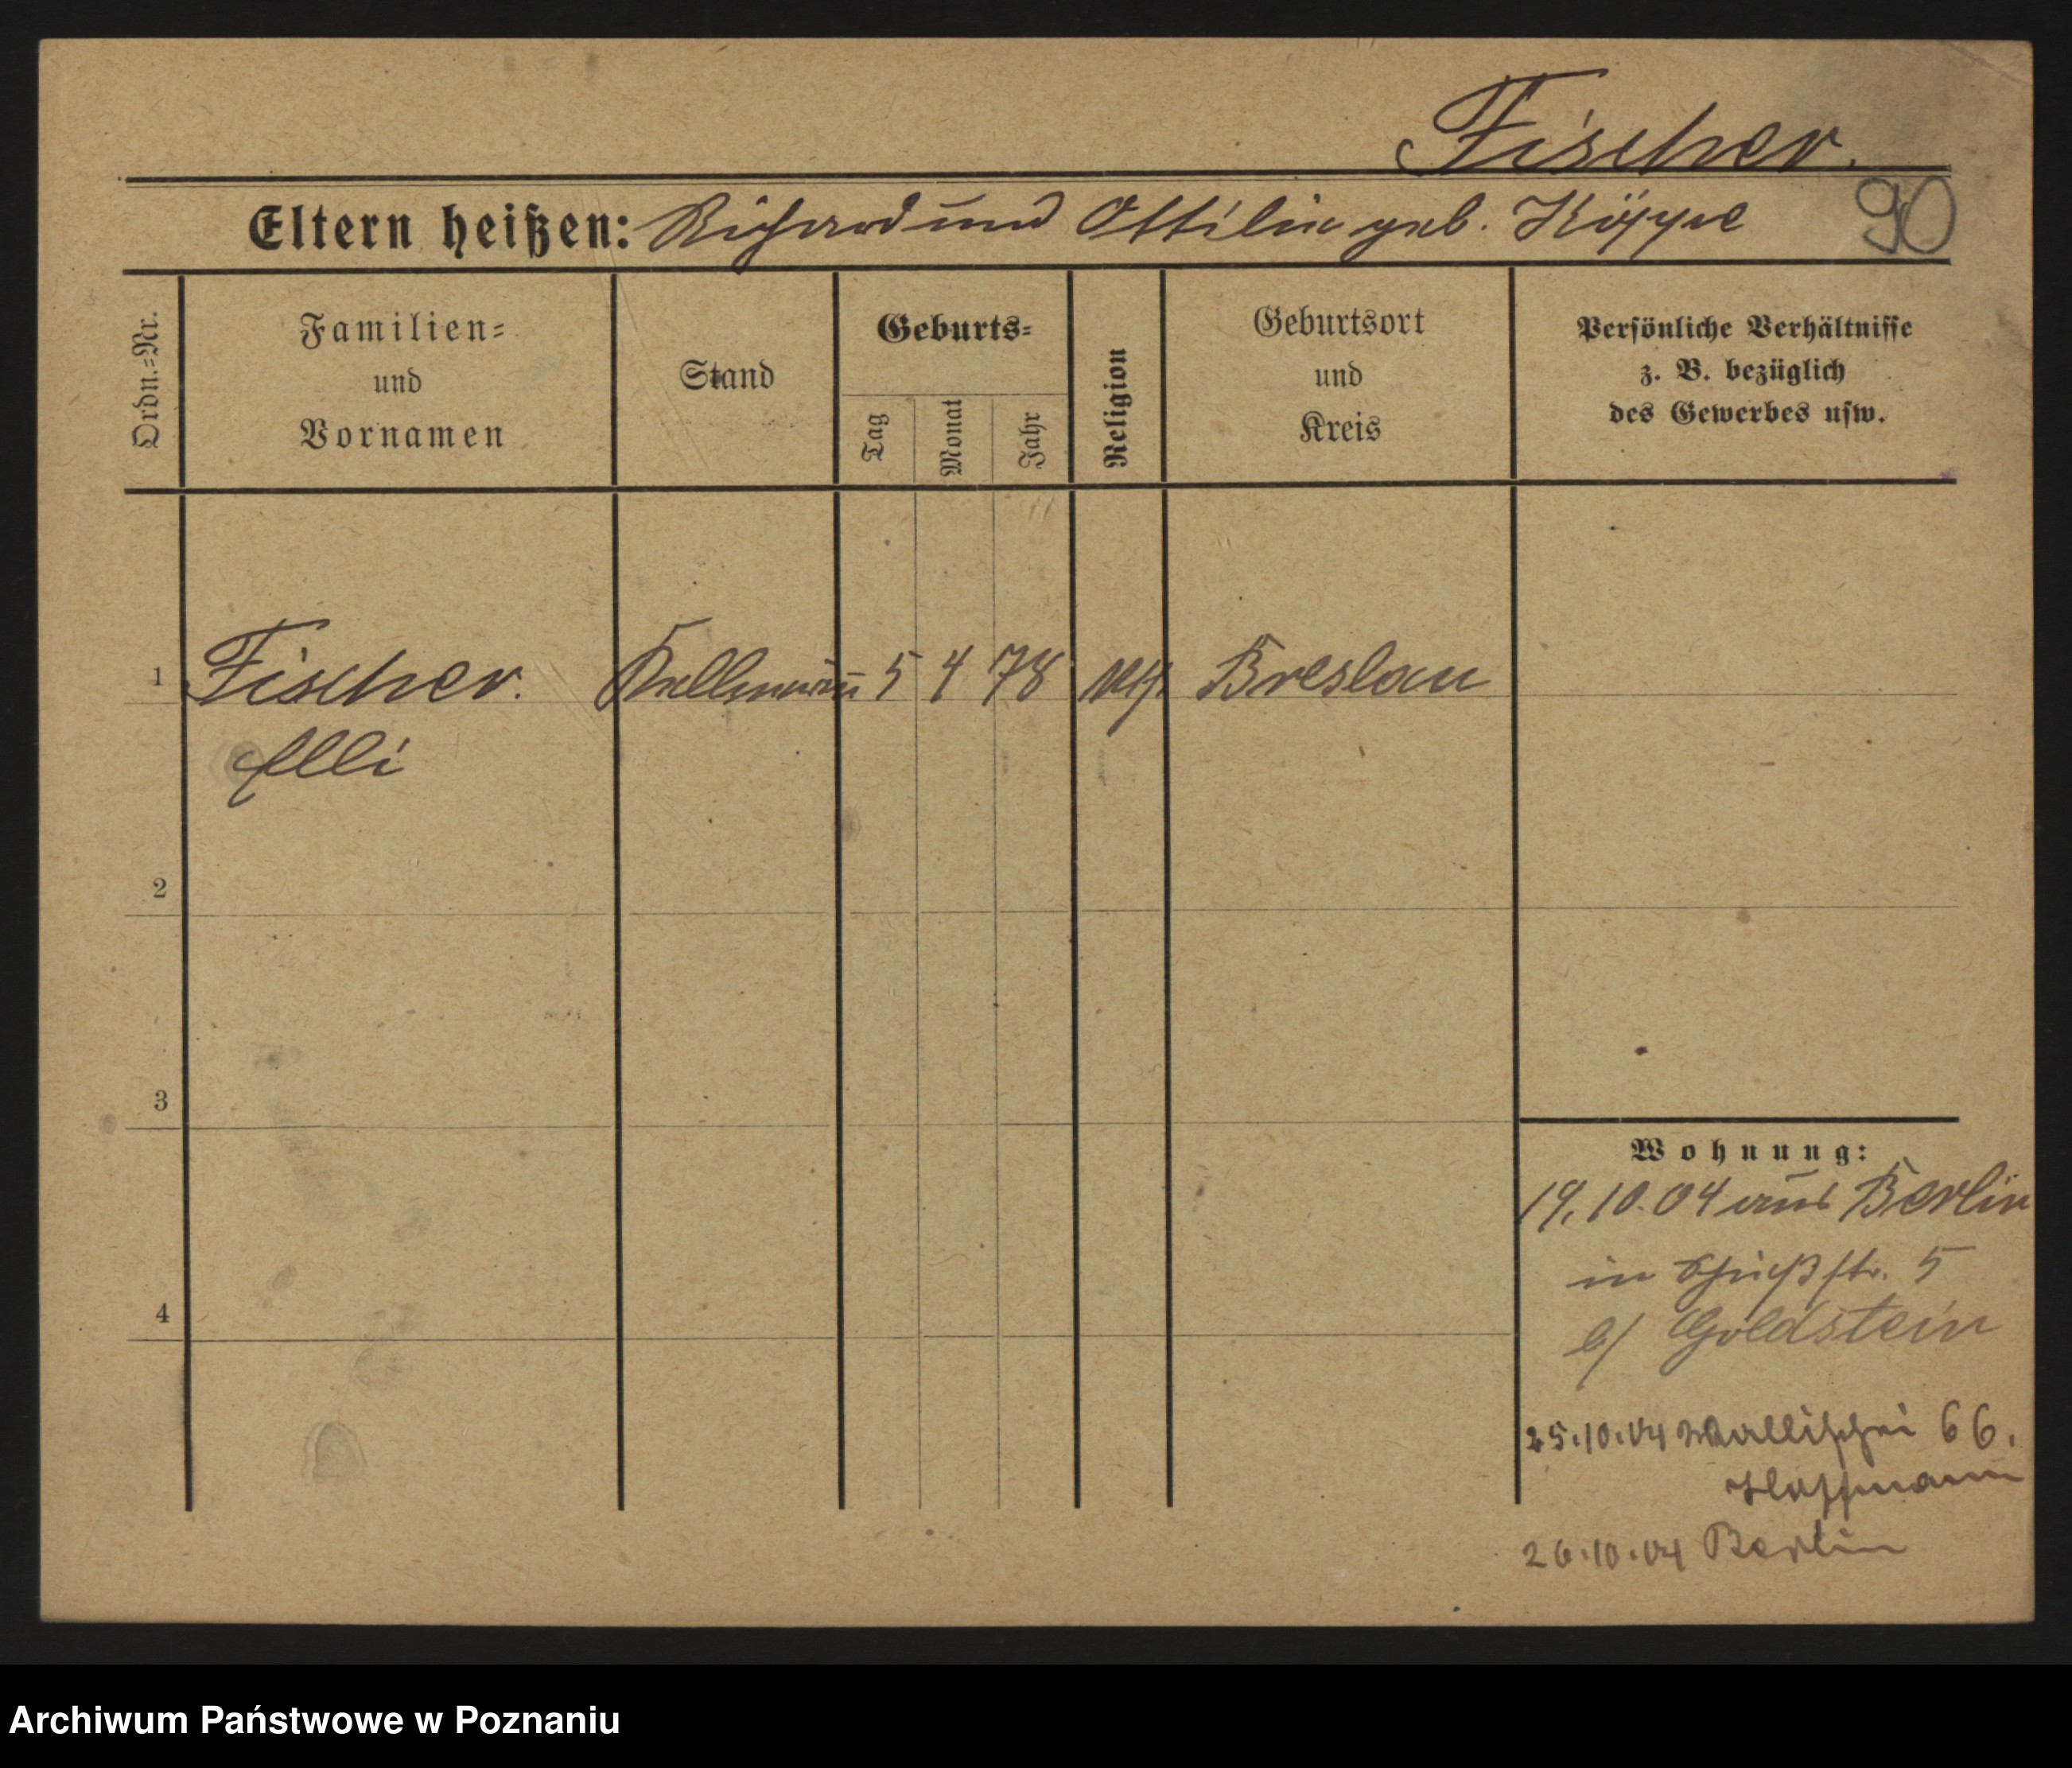 Fischer.
Eltern heißen: Richard und Ottilie geb. Köppe 90
Ordn.=Nr.
Familien=
und
Vornamen
Stand
Geburts=
Tag
Monat
Jahr
Religion
Geburtsort
und
Kreis
Persönliche Verhältnisse
z. B. bezüglich
des Gewerbes usw.
1 Fischer. Kellnerin 5 4 78 Breslau
Elli
2
3
4
Wohnung:
19.10.04 aus Berlin
in Schießstr. 5
b/ Goldstein
25.10.04 Wallischei 66.
Hoffmann
26.10.04 Berlin
Archiwum Państwowe w Poznaniu